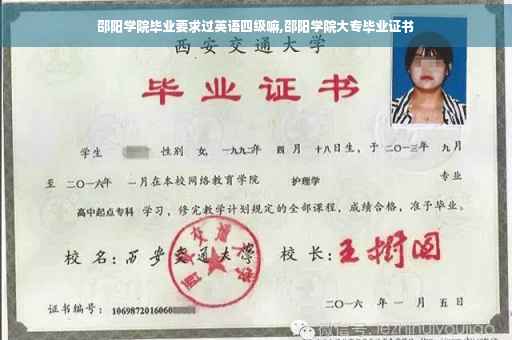 邵阳学院毕业要求过英语四级嘛,邵阳学院大专毕业证书
西安交通大学
毕业证书
学生 性别 女, 一九九二年 四 月 十八日生, 于 二〇一三年 九月
至 二〇一六年 一月在本校网络教育学院 护理学 专业
高中起点专科 学习, 修完教学计划规定的全部课程, 成绩合格, 准予毕业。
校 名: 西安交通大学 校 长: 王树国
证书编号: 1069872016060
二〇一六 年 一 月 五 日
微信号: jezhihuiyoujiao